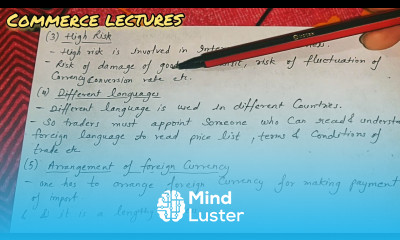 COMMERCE LECTURES
(3) High Risk
- High risk is Involved in
- Risk of damage of risk of fluctuation of
Currency Conversion rate etc.
Different languages
- Different language is used in different Countries.
- So traders must appoint Someone who Can read &
foreign language to read price list, terms & Conditions of
trade etc
(5) Arrangement of foreign Currency
- one has to arrange foreign Currency for making payment
of import
is a
Mind
Luster